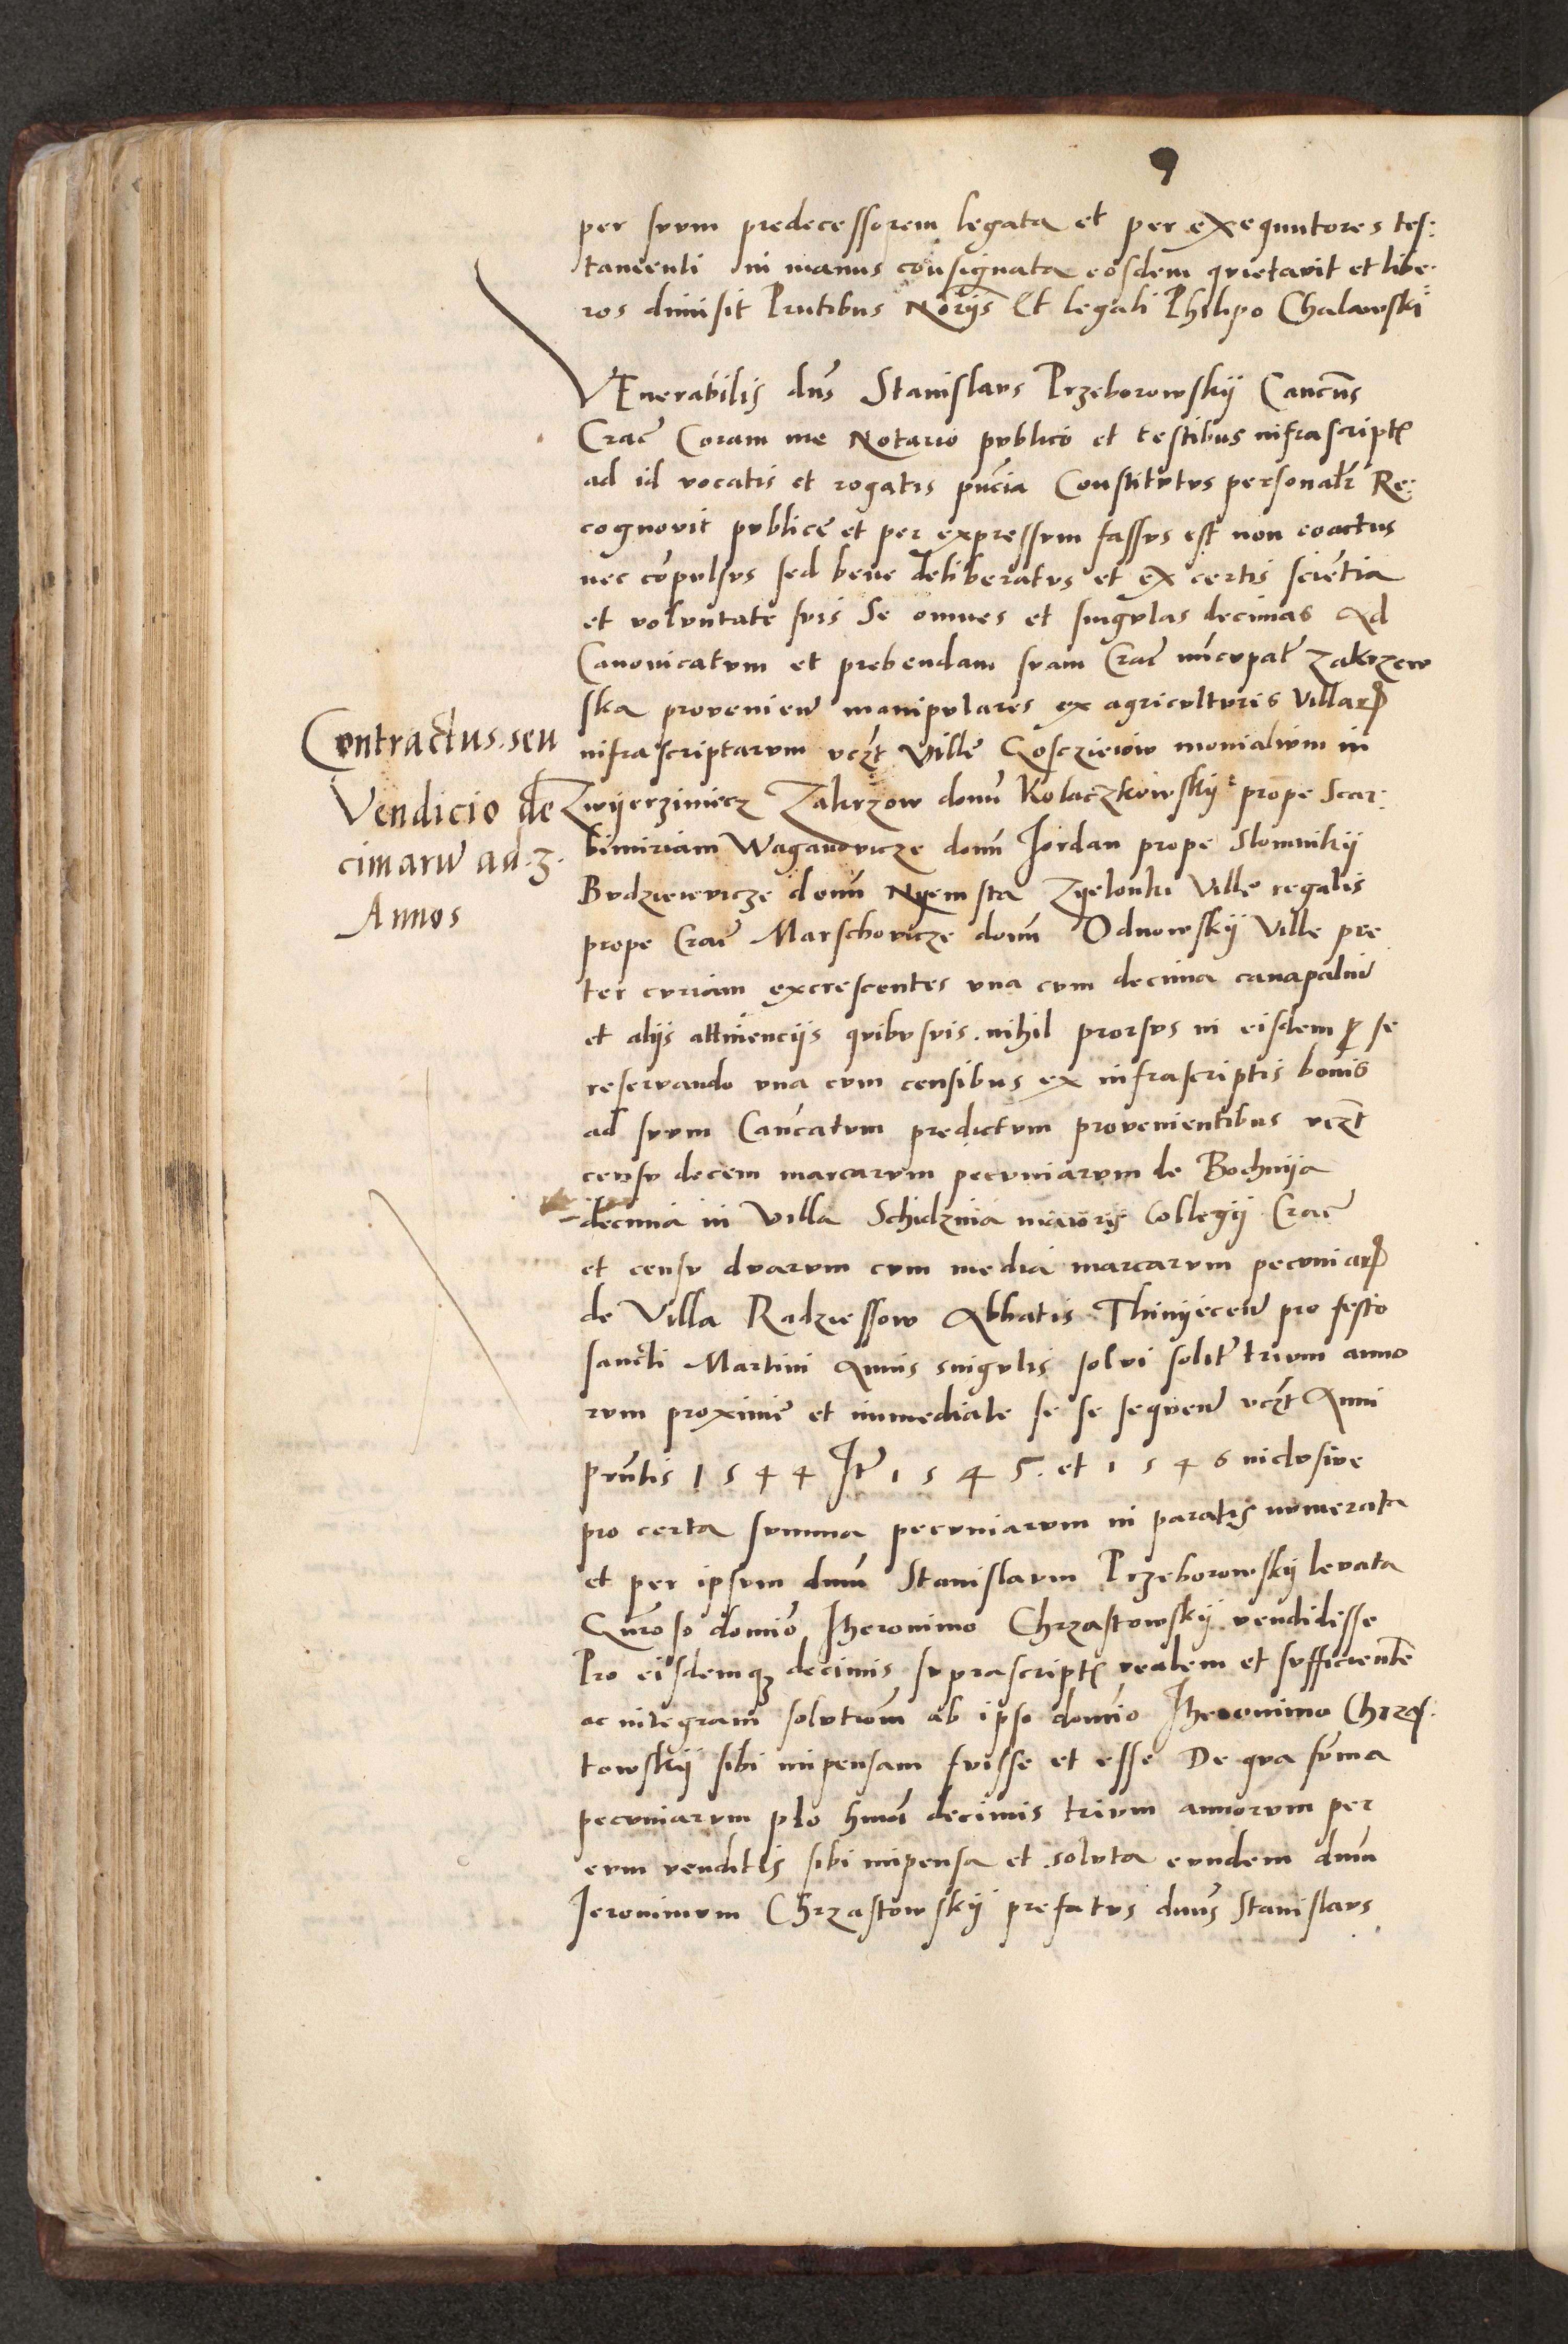 per suum predecessorem legata et per exequutores tes:
tamenti in manus consignata eosdem quietavit et libe:
ros dimisit Pntibus Norijs Et legali Philipo Chalawski
VEnerabilis dns Stanislaus Przeborowskij Cancus
Crac Coram me Notario publico et testibus infrascript
ad id vocatis et rogatis pncia Constitutus personalr Re:
cognovit publice et per expressum fassus est non coactus
nec copulsus sed bene deliberatus et ex certis scientia
et voluntate suis Se omnes et singulas decimas Ad
Canonicatum et prebendam suam Crac nuncupat Zakrzew
ska provenien manipulares ex agriculturis Villar
Contractus seu
Vendicio de
cimaru ad 3
Annos
infrascriptarum vczt Ville Gosczieiow monialium in
Zwijerziniecz Zakrzow domi Kolaczkowskij prope Scar:
bimiriam Waganovicze domi Jordan prope Slomnikij
Budzieievicze domi Nyemsta Zyelonki Ville regalis
prope Crac Marschovicze domi Odnowskij Ville pre
ter curiam excrescentes una cum decima canapaliu
et alijs attinencijs quibusvis nihil prorsus in eisdem p se
reservando una cum censibus ex infrascriptis bonis
ad suum Cancatum predictum provenientibus vczt
censu decem marcarum pecuniarum de Bochnija
decima in Villa Schidznia maioris Collegij Crac
et censu duarum cum media marcarum pecuniar
de Villa Radziessow Abbatis Thinijecen pro festo
sancti Martini Annis singulis solvi solit trium anno
rum proxime et immediate se se sequen vczt Anni
pntis 1544 It 1545. et 1546 inclusive
pro certa summa pecuniarum in paratis numerata
et per ipsum dnm Stanislaum Przeborowskij levata
Gnroso domio Iheronimo Chrzastowskij vendidisse
Pro eisdemq decimis suprascript realem et sufficiente
ac integram solutiom ab ipso domio Iheronimo Chrzas:
towskij sibi impensam fuisse et esse De qua suma
pecuniarum pro hmoi decimis trium annorum per
eum venditis sibi impensa et soluta eundem dnm
Jeronimum Chrzastowskij prefatus dnus Stanislaus